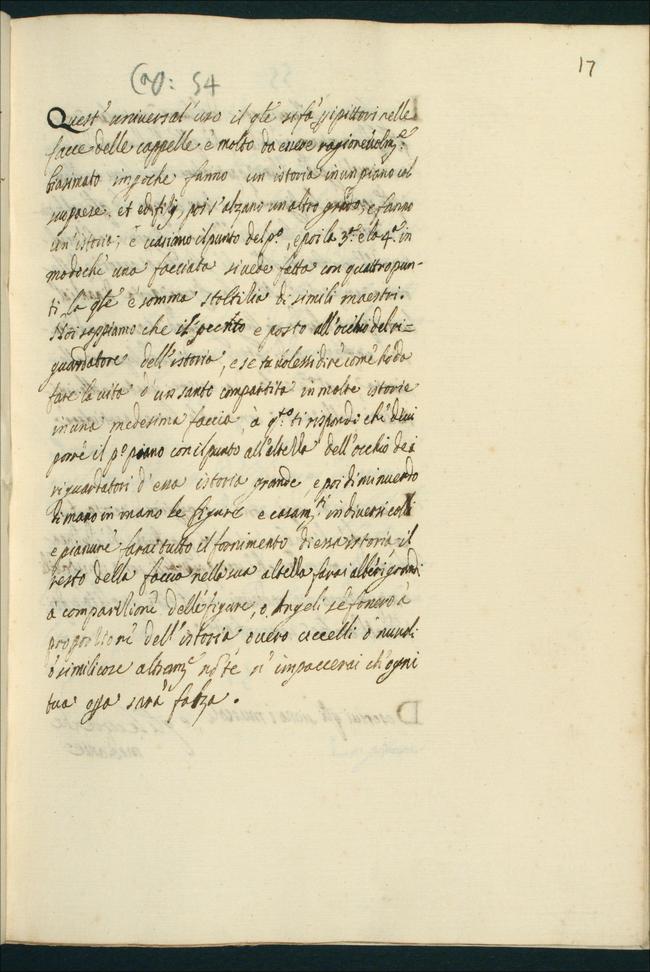 17
Cap: 54
Quest' universal' uso il qle si fà ppi pittori nelle
facce delle cappelle è molto da essere ragionevolmte
biasimato impoche fanno un istoria in un piano col
suo paese et edifizij, poi s'alzano un altro grado, e fanno
un' istoria; è variano il punto del p.o, e poi la 3.a è la 4.a in
modochè una facciata si vede fatta con quattro pun-
ti la qle è somma stoltitia di simili maestri.
Noi sappiamo che il punto e posto all'occhio del ri=
guardatore dell'istoria, e se tu volessi dire com'è hò da
fare la vita d'un santo compartita in molte istorie
in una medesima faccia, à qto ti rispondi chè devi
porre il p.o piano con il punto all'altezza dell'occhio dei
riguardatori d'essa istoria grande, e poi diminuendo
di mano in mano le figure e casamti in diversi colli
e pianure farai tutto il fornimento di essa istoria il
resto della faccia nella sua altezza farai alberi grandi
à comparitione delle figure, o Angeli se fonero a
proportione dell'istoria overo uccelli ò nuvoli
ò simili cose altramte non te n' impaccerai ch' ogni
tua opa sarà falza.